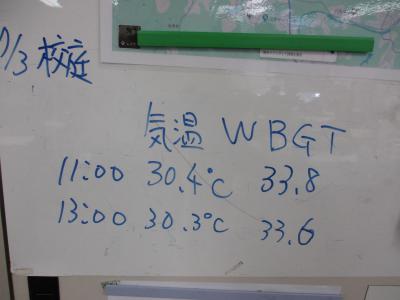 7/3 校庭
気温 WBGT
11:00 30.4℃ 33.8
13:00 30.3℃ 33.6